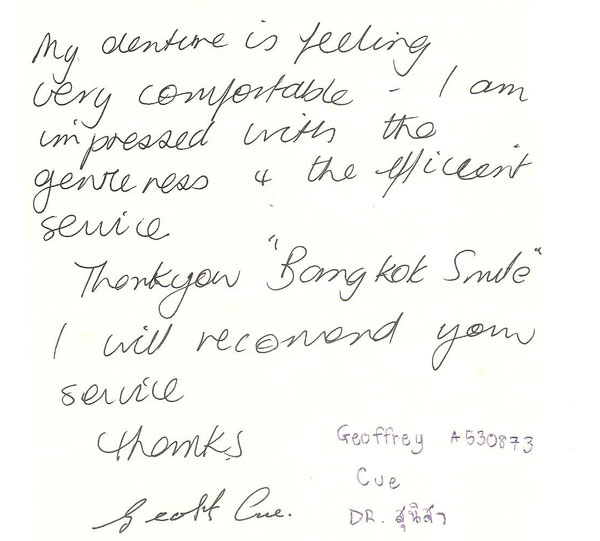 My denture is feeling
very comfortable - I am
impressed with the
gentleness & the efficient
service
Thankyou "Bangkok Smile"
I will recomend your
service
thanks
Geoff Cue.
Geoffrey A530873
Cue
DR. สุนิสา